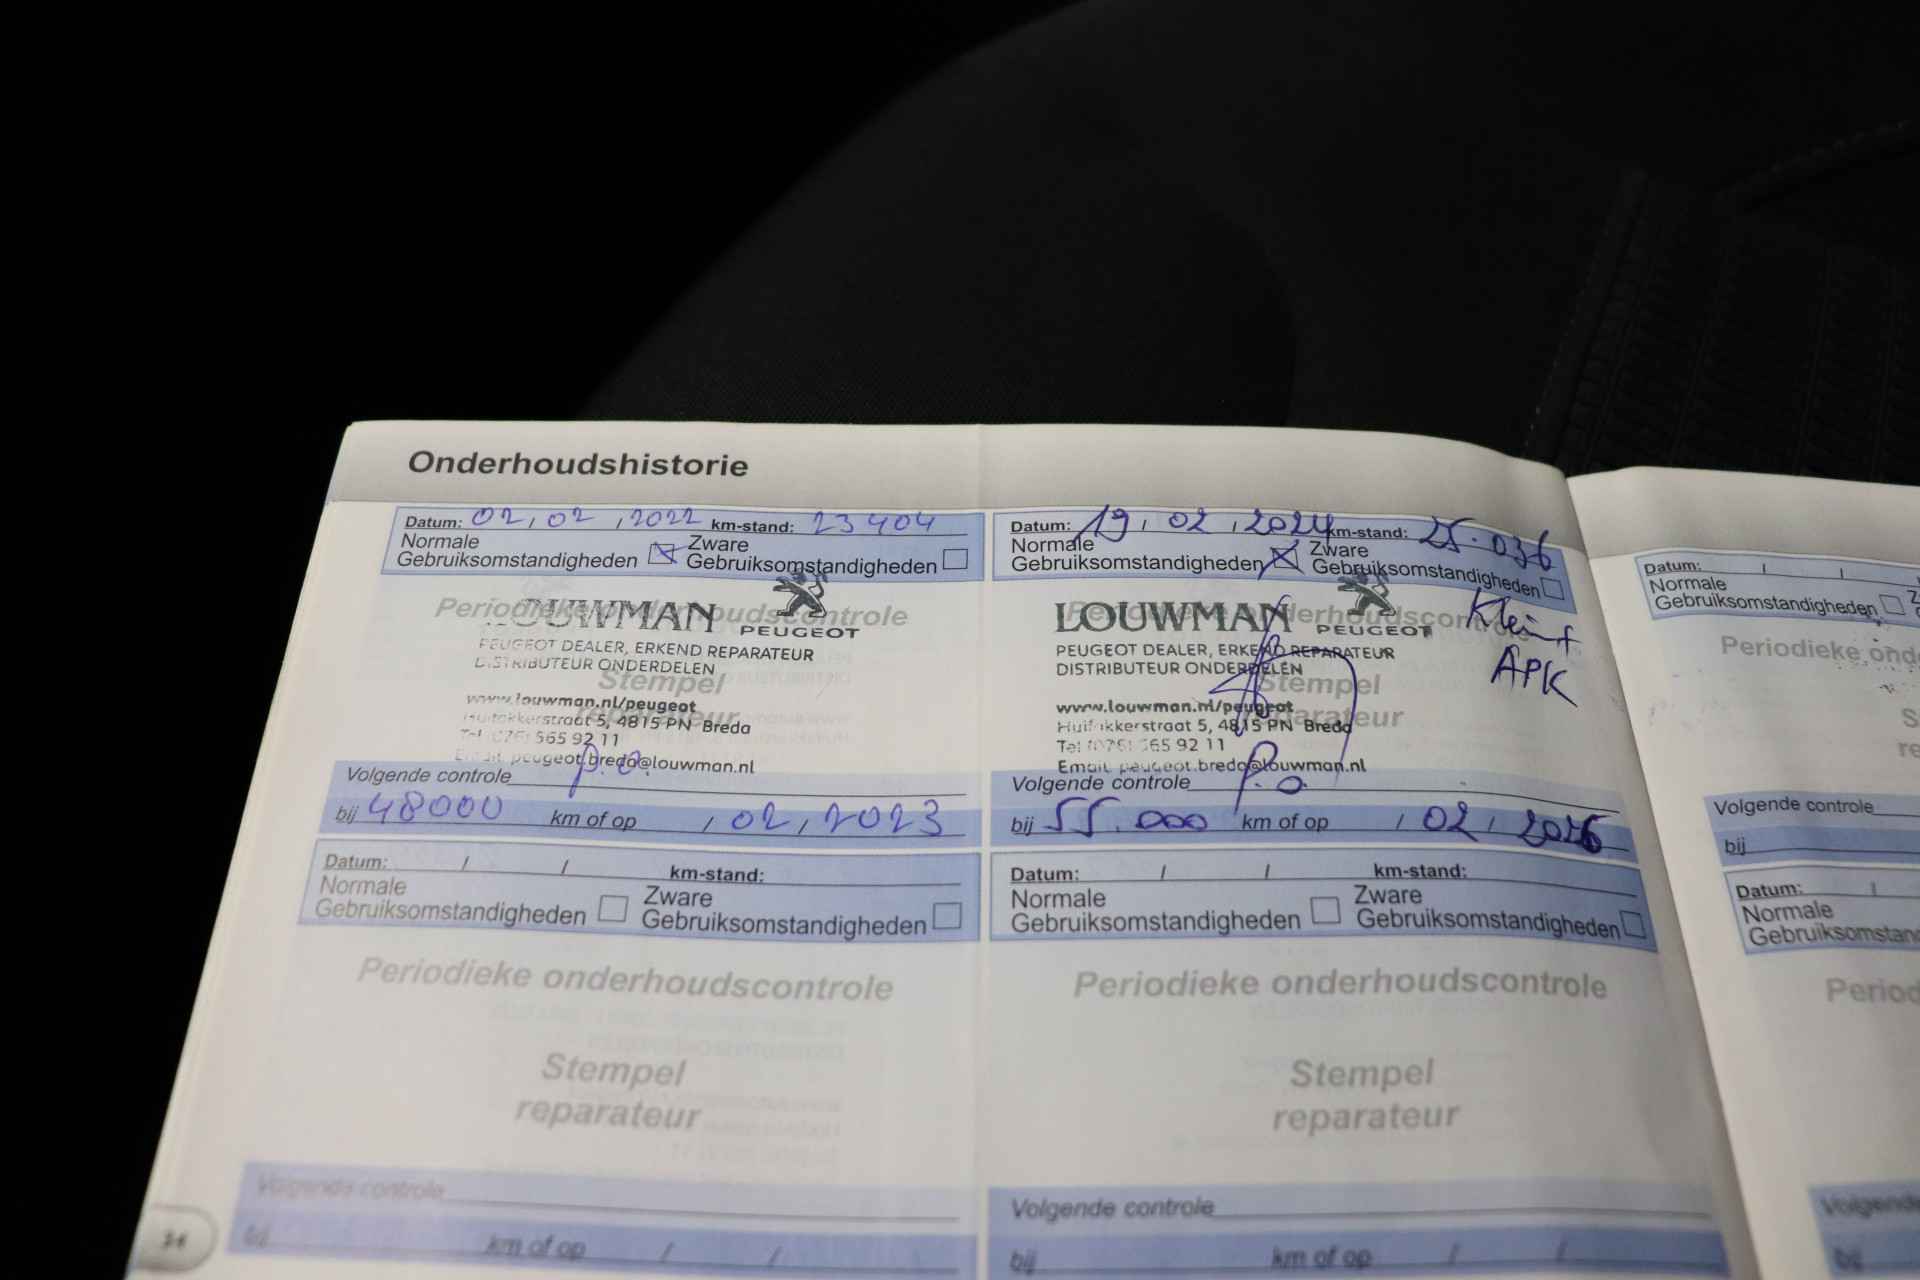 Onderhoudshistorie
Datum: 02 / 02 / 2022 km-stand: 23404
Normale Gebruiksomstandigheden Zware Gebruiksomstandigheden
Periodieke onderhoudscontrole
LOUWMAN PEUGEOT
PEUGEOT DEALER, ERKEND REPARATEUR
DISTRIBUTEUR ONDERDELEN
Stempel
reparateur
www.louwman.nl/peugeot
Huifakkerstraat 5, 4815 PN Breda
Tel (076) 565 92 11
Email peugeot.breda@louwman.nl
Volgende controle p.o.
bij 48000 km of op / 02 / 2023
Datum: 19 / 02 / 2024 km-stand: 25.036
Normale Gebruiksomstandigheden Zware Gebruiksomstandigheden
Periodieke onderhoudscontrole
LOUWMAN PEUGEOT
Klein +
APK
PEUGEOT DEALER, ERKEND REPARATEUR
DISTRIBUTEUR ONDERDELEN
Stempel
reparateur
www.louwman.nl/peugeot
Huifakkerstraat 5, 4815 PN Breda
Tel (076) 565 92 11
Email peugeot.breda@louwman.nl
Volgende controle p.o.
bij 55.000 km of op / 02 / 2026
Datum: / / km-stand:
Normale Gebruiksomstandigheden Zware Gebruiksomstandigheden
Periodieke onderhoudscontrole
Stempel
reparateur
Volgende controle
bij km of op / /
Datum: / / km-stand:
Normale Gebruiksomstandigheden Zware Gebruiksomstandigheden
Periodieke onderhoudscontrole
Stempel
reparateur
Volgende controle
bij km of op / /
Datum: / /
Normale
Gebruiksomstandigheden
Periodieke
Volgende controle
bij
Datum: /
Normale
Volgende
bij